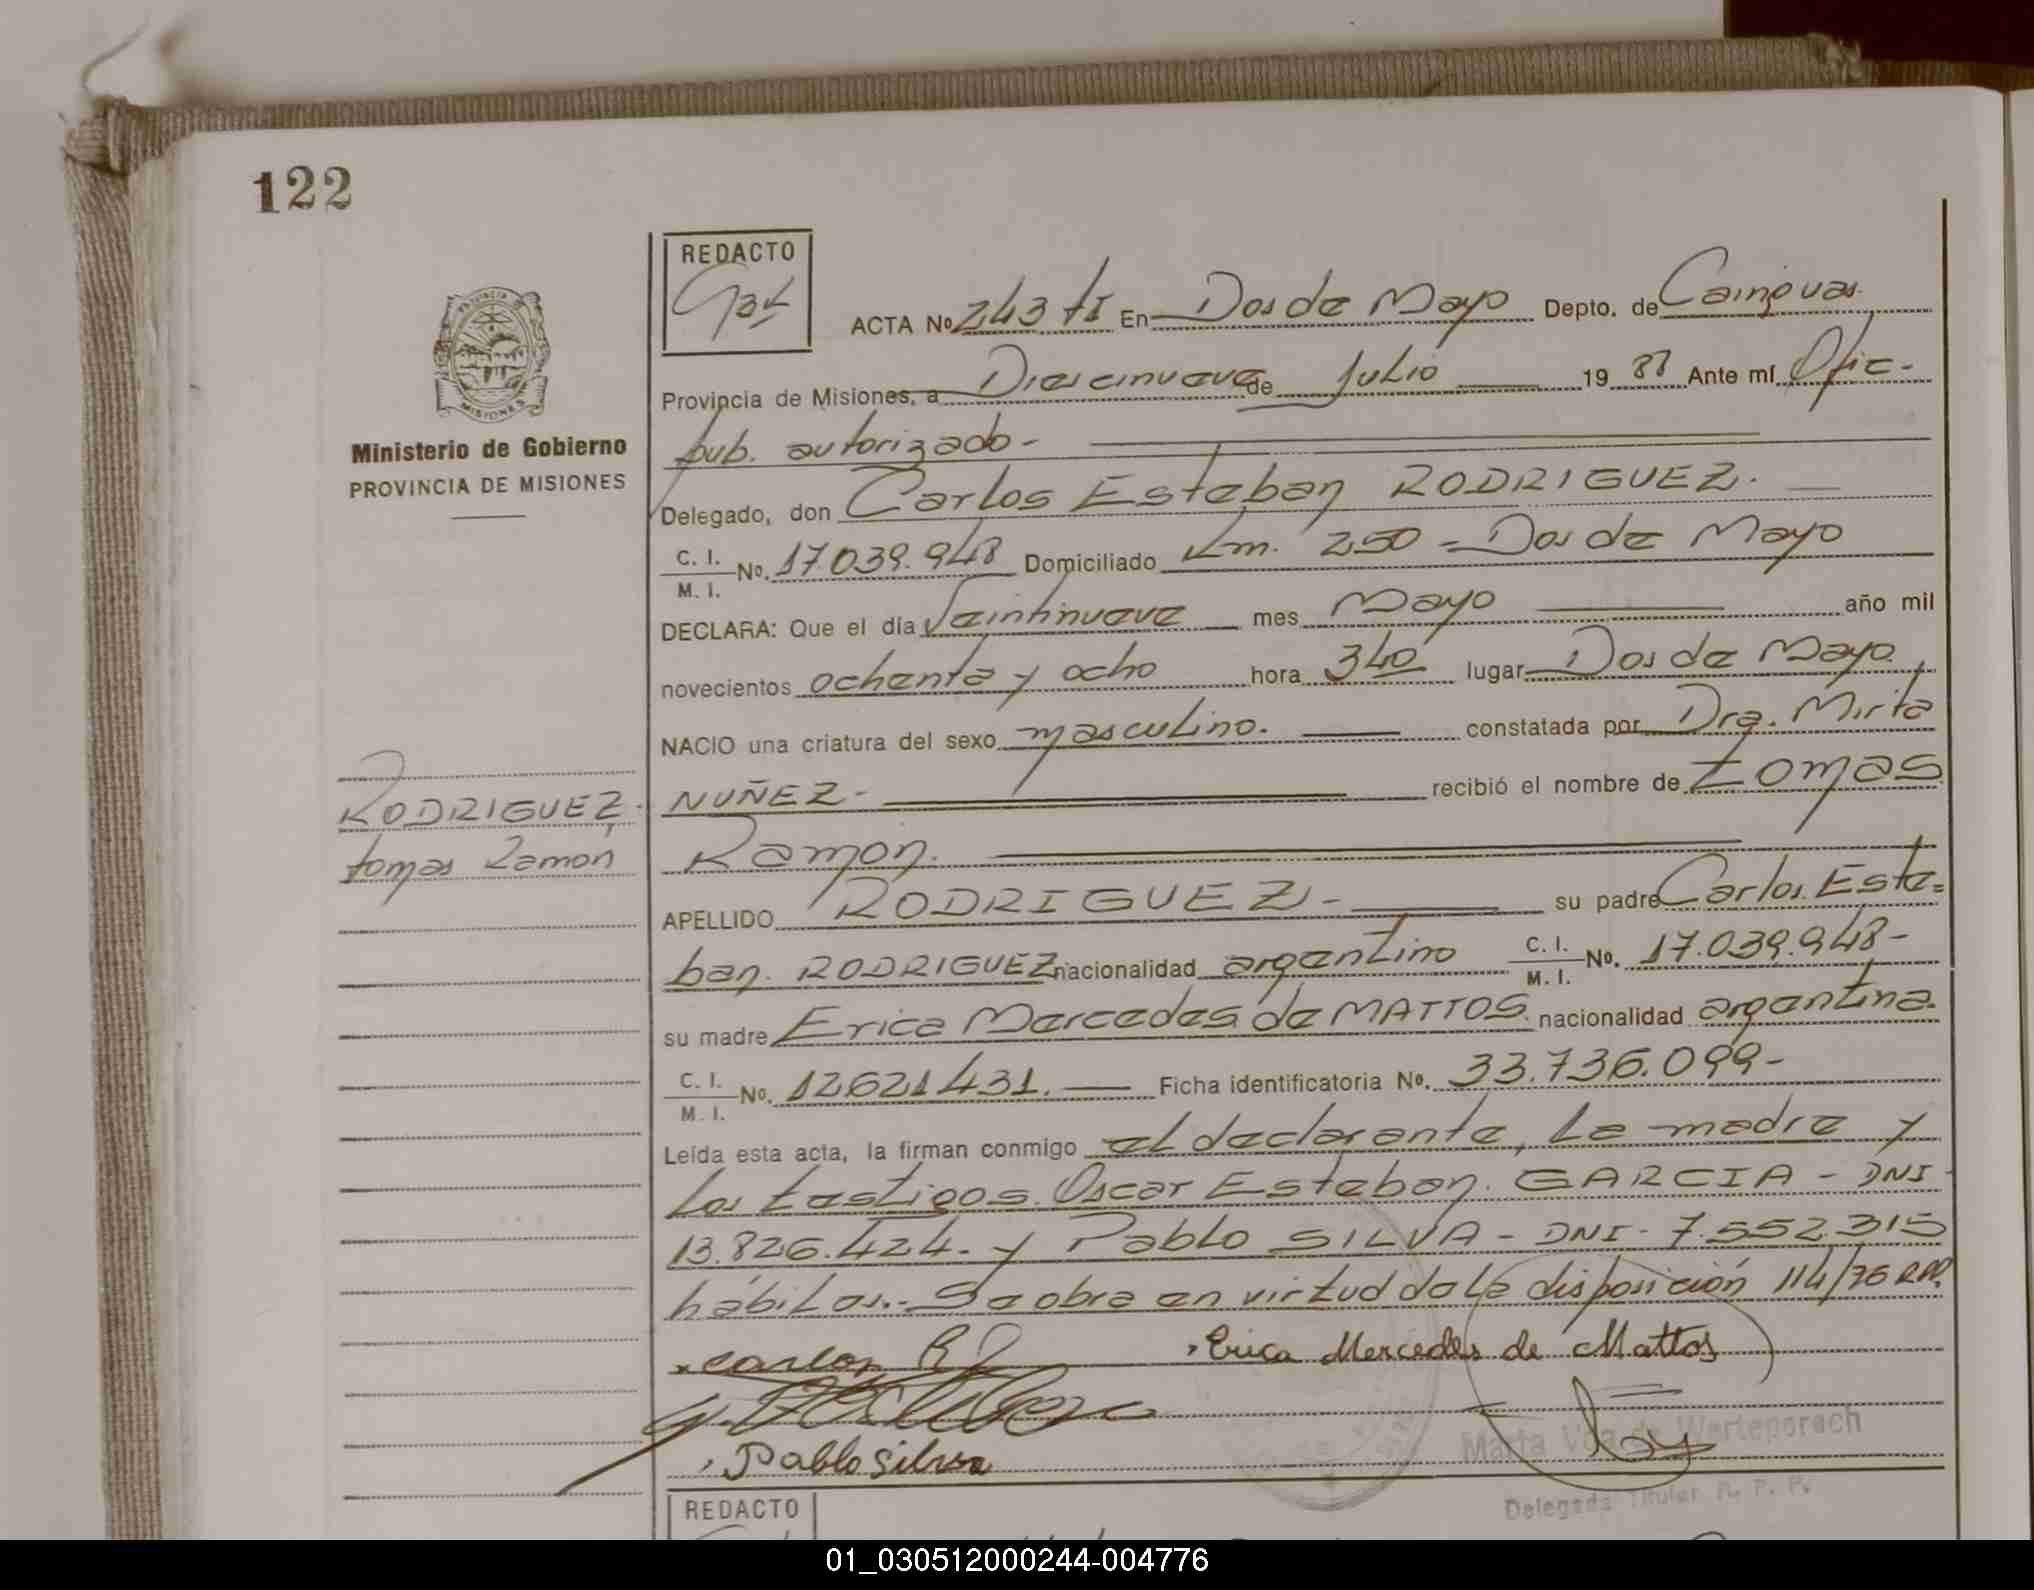 122
REDACTO
PROVINCIA DE
MISIONES
Ministerio de Gobierno
PROVINCIA DE MISIONES
ACTA No 243 tI En Dos de Mayo Depto. de Cainguas.
Provincia de Misiones, a Diescinueve de Julio 19 88 Ante mí Ofic-
pub. autorizado-
Delegado, don Carlos Esteban RODRIGUEZ.
C. I.
M. I. No. 17.039.948 Domiciliado Km. 250 - Dos de Mayo
DECLARA: Que el día Veintinueve mes Mayo año mil
novecientos ochenta y ocho hora 340 lugar Dos de Mayo
NACIO una criatura del sexo masculino. constatada por Dra. Mirta
NUÑEZ- recibió el nombre de Tomas
Ramon.
RODRIGUEZ.
tomas Ramon
APELLIDO RODRIGUEZ- su padre Carlos Este=
ban. RODRIGUEZ nacionalidad argentino C. I.
M. I. No. 17.039.948-
su madre Erica Mercedes de MATTOS. nacionalidad argentina.
C. I.
M. I. No. 12621431. Ficha identificatoria No. 33.736.099-
Leída esta acta, la firman conmigo el declarante, la madre y
los testigos. Oscar Esteban. GARCIA - DNI-
13.826.424.- y Pablo SILVA - DNI- 7.552.315
hábiles.- Se obra en virtud de la disposición 114/76 RPP.
carlos R
Erica Mercedes de Mattos
Pablo silva
Marta de Werteporoch
Delegada Titular R. P. P.
REDACTO
01_030512000244-004776